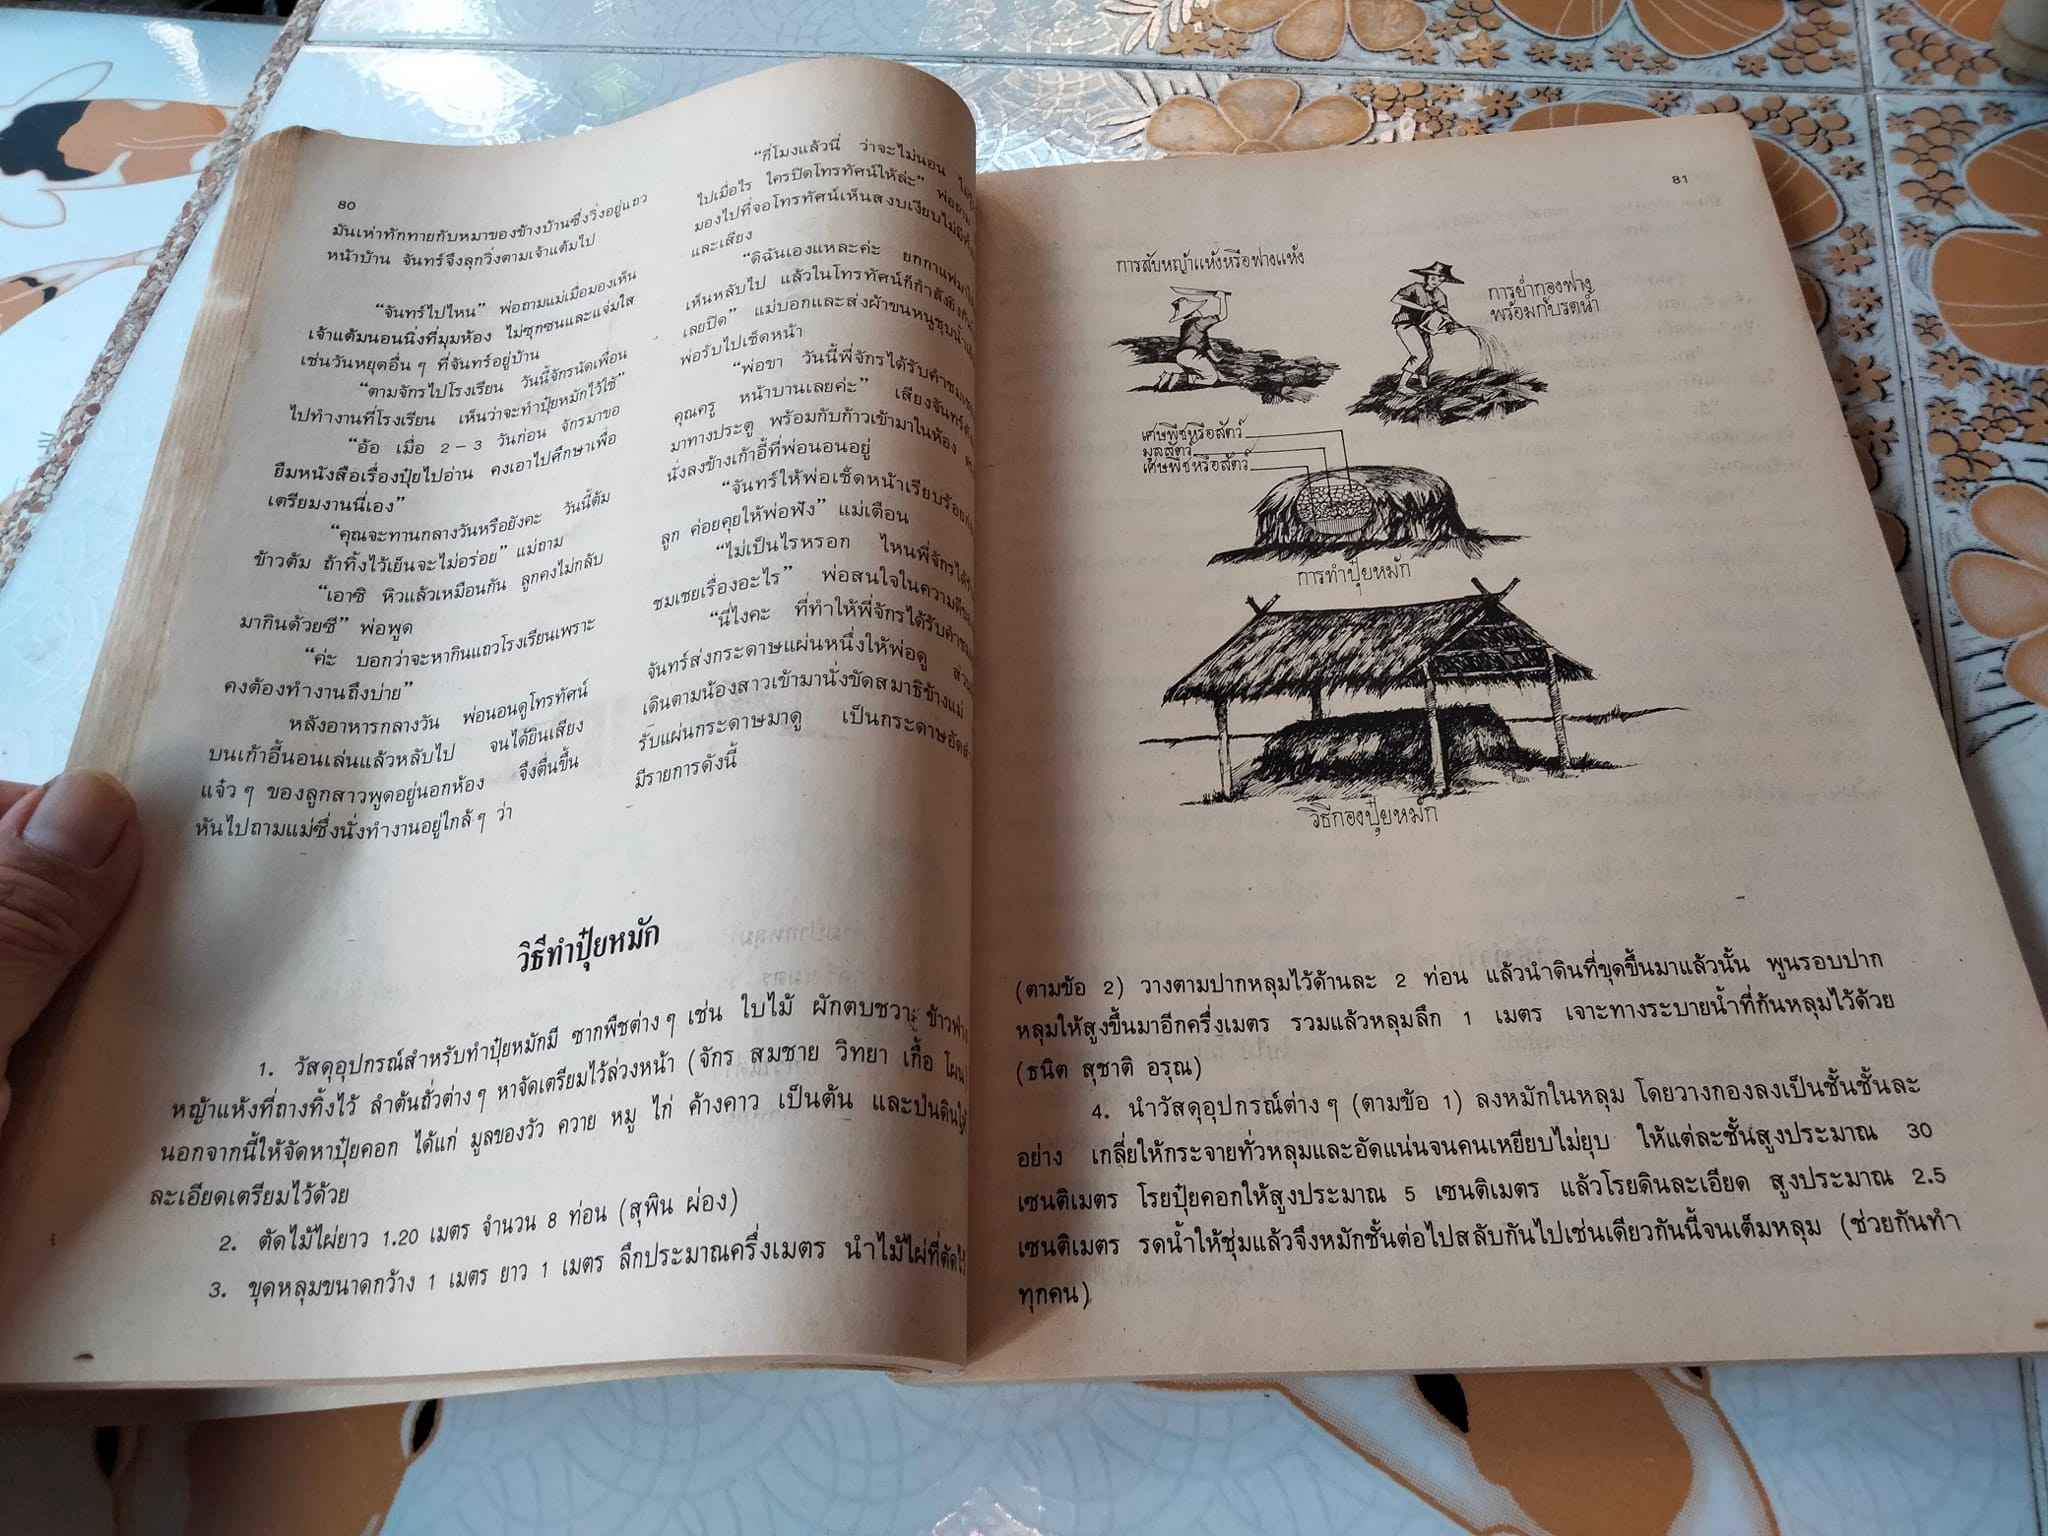 80
มันเห่าทักทายกับหมาของข้างบ้านซึ่งวิ่งอยู่แถว
หน้าบ้าน จันทร์จึงลุกวิ่งตามเจ้าแต้มไป
“จันทร์ไปไหน” พ่อถามแม่เมื่อมองเห็น
เจ้าแต้มนอนนิ่งที่มุมห้อง ไม่ซุกซนและแจ่มใส
เช่นวันหยุดอื่น ๆ ที่จันทร์อยู่บ้าน
“ตามจักรไปโรงเรียน วันนี้จักรนัดเพื่อน
ไปทำงานที่โรงเรียน เห็นว่าจะทำปุ๋ยหมักไว้ใช้”
“อ้อ เมื่อ 2 – 3 วันก่อน จักรมาขอ
ยืมหนังสือเรื่องปุ๋ยไปอ่าน คงเอาไปศึกษาเพื่อ
เตรียมงานนี่เอง”
“คุณจะทานกลางวันหรือยังคะ วันนี้ต้ม
ข้าวต้ม ถ้าทิ้งไว้เย็นจะไม่อร่อย” แม่ถาม
“เอาซิ หิวแล้วเหมือนกัน ลูกคงไม่กลับ
มากินด้วยซี” พ่อพูด
“ค่ะ บอกว่าจะหากินแถวโรงเรียนเพราะ
คงต้องทำงานถึงบ่าย”
หลังอาหารกลางวัน พ่อนอนดูโทรทัศน์
บนเก้าอี้นอนเล่นแล้วหลับไป จนได้ยินเสียง
แจ๋ว ๆ ของลูกสาวพูดอยู่นอกห้อง จึงตื่นขึ้น
หันไปถามแม่ซึ่งนั่งทำงานอยู่ใกล้ ๆ ว่า
“กี่โมงแล้วนี่ ว่าจะไม่นอน
ไปเมื่อไร ใครปิดโทรทัศน์ให้ล่ะ” พ่อถาม
มองไปที่จอโทรทัศน์เห็นสงบเงียบไม่มี
และเสียง
“ดิฉันเองแหละค่ะ ยกกาแฟมา
เห็นหลับไป แล้วในโทรทัศน์ก็กำลังยิงกัน
เลยปิด” แม่บอกและส่งผ้าขนหนูชุบน้ำ
พ่อรับไปเช็ดหน้า
“พ่อขา วันนี้พี่จักรได้รับคำชม
คุณครู หน้าบานเลยค่ะ” เสียงจันทร์
มาทางประตู พร้อมกับก้าวเข้ามาในห้อง
นั่งลงข้างเก้าอี้ที่พ่อนอนอยู่
“จันทร์ให้พ่อเช็ดหน้าเรียบร้อย
ลูก ค่อยคุยให้พ่อฟัง” แม่เตือน
“ไม่เป็นไรหรอก ไหนพี่จักรได้รับ
ชมเชยเรื่องอะไร” พ่อสนใจในความดี
“นี่ไงคะ ที่ทำให้พี่จักรได้รับคำชม
จันทร์ส่งกระดาษแผ่นหนึ่งให้พ่อดู
เดินตามน้องสาวเข้ามานั่งขัดสมาธิข้างแม่
รับแผ่นกระดาษมาดู เป็นกระดาษอัด
มีรายการดังนี้
วิธีทำปุ๋ยหมัก
1. วัสดุอุปกรณ์สำหรับทำปุ๋ยหมักมี ซากพืชต่าง ๆ เช่น ใบไม้ ผักตบชวา ข้าวฟ่าง
หญ้าแห้งที่ถางทิ้งไว้ ลำต้นถั่วต่าง ๆ หาจัดเตรียมไว้ล่วงหน้า (จักร สมชาย วิทยา เกื้อ โผน)
นอกจากนี้ให้จัดหาปุ๋ยคอก ได้แก่ มูลของวัว ควาย หมู ไก่ ค้างคาว เป็นต้น และป่นดินให้
ละเอียดเตรียมไว้ด้วย
2. ตัดไม้ไผ่ยาว 1.20 เมตร จำนวน 8 ท่อน (สุพิน ผ่อง)
3. ขุดหลุมขนาดกว้าง 1 เมตร ยาว 1 เมตร ลึกประมาณครึ่งเมตร นำไม้ไผ่ที่ตัดไว้
81
การสับหญ้าแห้งหรือฟางแห้ง
การย่ำกองฟาง
พร้อมกับรดน้ำ
เศษพืชหรือสัตว์
มูลสัตว์
เศษพืชหรือสัตว์
การทำปุ๋ยหมัก
วิธีกองปุ๋ยหมัก
(ตามข้อ 2) วางตามปากหลุมไว้ด้านละ 2 ท่อน แล้วนำดินที่ขุดขึ้นมาแล้วนั้น พูนรอบปาก
หลุมให้สูงขึ้นมาอีกครึ่งเมตร รวมแล้วหลุมลึก 1 เมตร เจาะทางระบายน้ำที่ก้นหลุมไว้ด้วย
(ธนิต สุชาติ อรุณ)
4. นำวัสดุอุปกรณ์ต่าง ๆ (ตามข้อ 1) ลงหมักในหลุม โดยวางกองลงเป็นชั้นชั้นละ
อย่าง เกลี่ยให้กระจายทั่วหลุมและอัดแน่นจนคนเหยียบไม่ยุบ ให้แต่ละชั้นสูงประมาณ 30
เซนติเมตร โรยปุ๋ยคอกให้สูงประมาณ 5 เซนติเมตร แล้วโรยดินละเอียด สูงประมาณ 2.5
เซนติเมตร รดน้ำให้ชุ่มแล้วจึงหมักชั้นต่อไปสลับกันไปเช่นเดียวกันนี้จนเต็มหลุม (ช่วยกันทำ
ทุกคน)